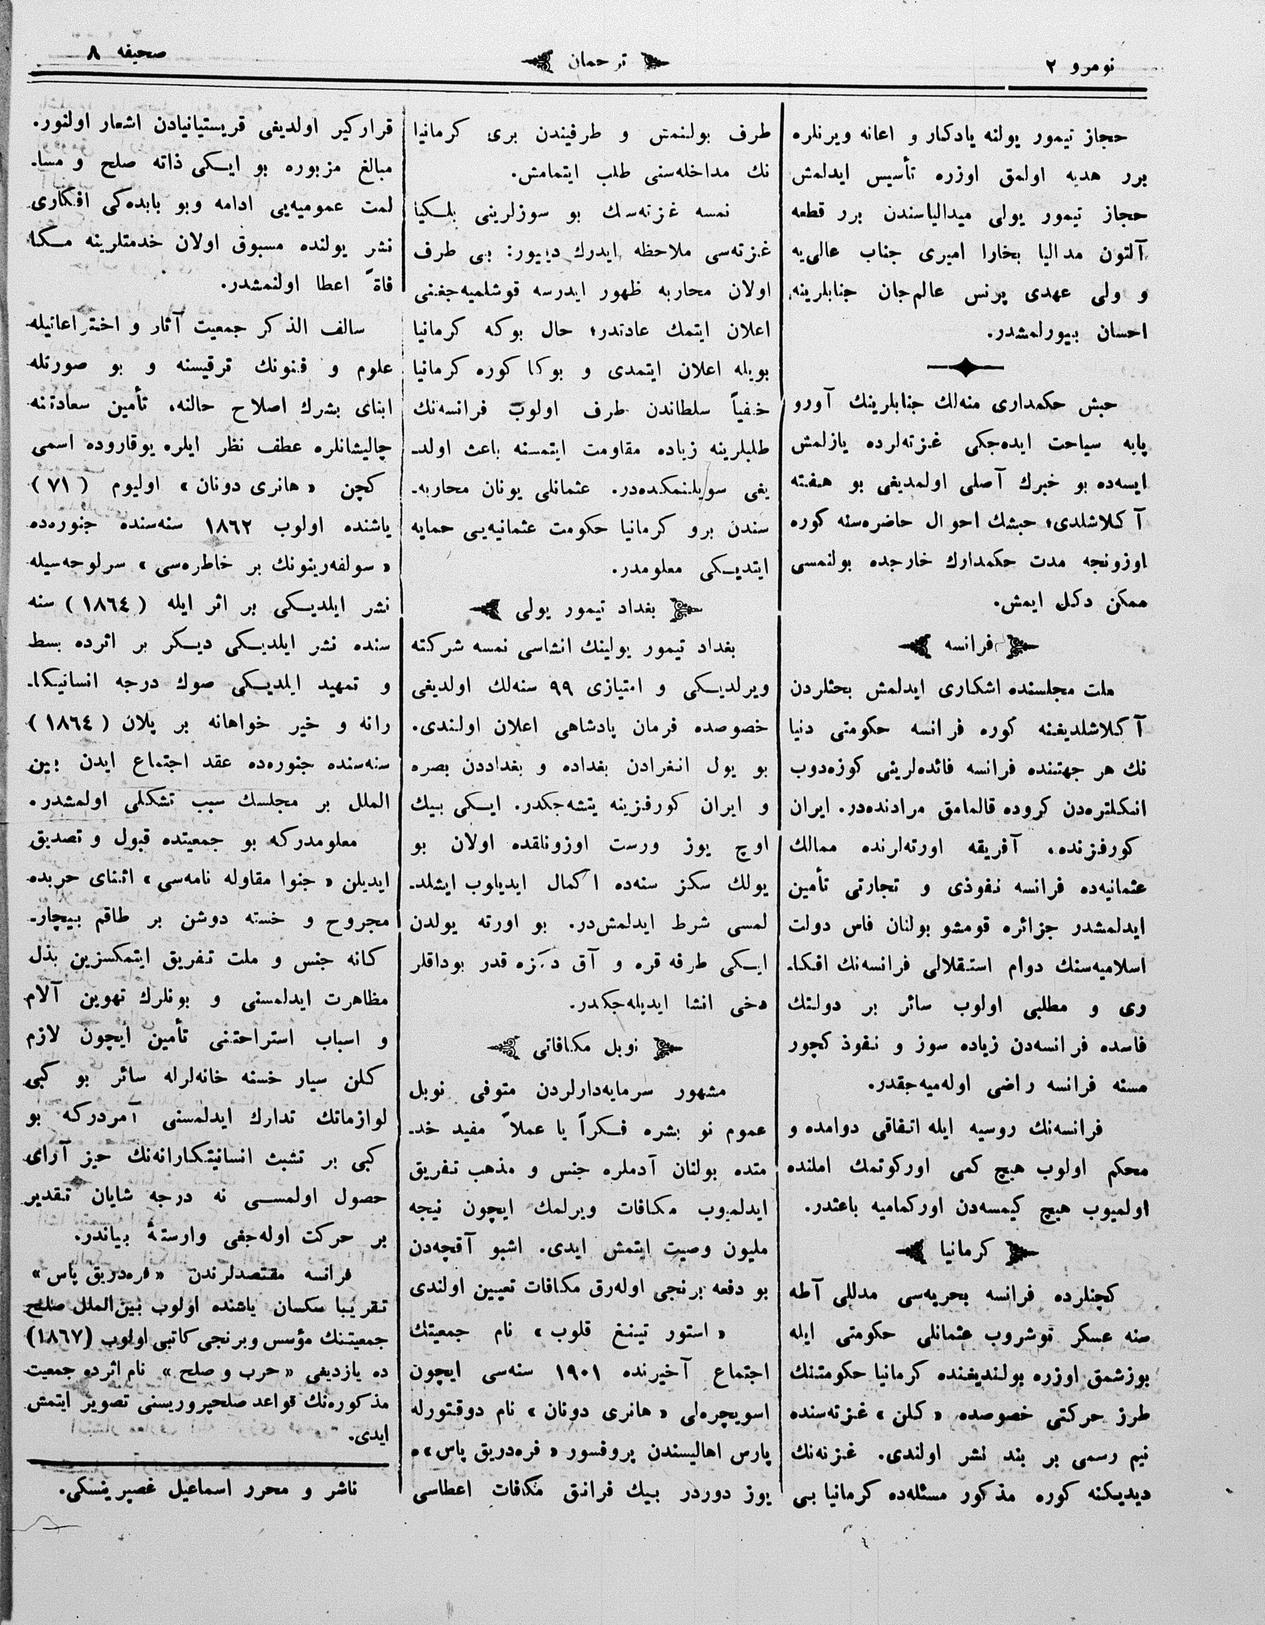 نومرو ٢
ترجمان
صحيفه ٨
حجاز تيمور يولنه يادكار و اعانه ويرنلره
برر هديه اولمق اوزره تأسيس ايدلمش
حجاز تيمور يولى ميدالياسندن برر قطعه
آلتون مداليا بخارا اميرى جناب عالىيه
و ولى عهدى پرنس عالم‌جان جنابلرينه
احسان بيورلمشدر.
حبش حكمدارى منه‌لك جنابلرينك آورو
پايه سياحت ايده‌جكى غزته‌لرده يازلمش
ايسه‌ده بو خبرك آصلى اولمديغى بو هفته
آكلاشلدى؛ حبشك احوال حاضره‌سنه كوره
اوزونجه مدت حكمدارك خارجده بولنمسى
ممكن دكل ايمش.
فرانسه
ملت مجلسنده اشكارى ايدلمش بحثلردن
آكلاشلديغنه كوره فرانسه حكومتى دنيا
نك هر جهتنده فرانسه فائده‌لرينى كوزه‌دوب
انكلتره‌دن كروده قالمامق مرادنده‌در. ايران
كورفزنده، آفريقه اورته‌لرنده ممالك
عثمانيه‌ده فرانسه نفوذى و تجارتى تأمين
ايدلمشدر جزائره قومشو بولنان فاس دولت
اسلاميه‌سنك دوام استقلالى فرانسه‌نك افكا-
رى و مطلبى اولوب سائر بر دولتك
فاسده فرانسه‌دن زياده سوز و نفوذ كچور
مسنه فرانسه راضى اوله‌ميه‌جقدر.
فرانسه‌نك روسيه ايله اتفاقى دوامده و
محكم اولوب هيچ كمى اوركوتمك املنده
اولميوب هيچ كيمسه‌دن اوركماميه باعثدر.
كرمانيا
كچنلرده فرانسه بحريه‌سى مدللى آطه
سنه عسكر توشروب عثمانلى حكومتى ايله
بوزشمق اوزره بولنديغنده كرمانيا حكومتنك
طرز حركتى خصوصده «كلن» غزته‌سنده
نيم رسمى بر بند نشر اولندى. غزته‌نك
ديديكنه كوره مذكور مسئله‌ده كرمانيا بى
طرف بولنمش و طرفيندن برى كرمانيا
نك مداخله‌سنى طلب ايتمامش.
نمسه غزته‌سنك بو سوزلرينى بلكيا
غزته‌سى ملاحظه ايدرك دييور: بى طرف
اولان محاربه ظهور ايدرسه قوشلميه‌جغنى
اعلان ايتمك عادتدر؛ حال بوكه كرمانيا
بويله اعلان ايتمدى و بوكا كوره كرمانيا
خفياً سلطاندن طرف اولوب فرانسه‌نك
طلبلرينه زياده مقاومت ايتمسنه باعث اولد-
يغى سويلنمكده‌در. عثمانلى يونان محاربه-
سندن برو كرمانيا حكومت عثمانيه‌يى حمايه
ايتديكى معلومدر.
بغداد تيمور يولى
بغداد تيمور يولينك انشاسى نمسه شركتنه
ويرلديكى و امتيازى ٩٩ سنه‌لك اولديغى
خصوصده فرمان پادشاهى اعلان اولندى.
بو يول انغرادن بغداده و بغداددن بصره
و ايران كورفزينه يتشه‌جكدر. ايكى بيك
اوچ يوز ورست اوزونلقده اولان بو
يولك سكز سنه‌ده اكمال ايديلوب ايشلد-
لمسى شرط ايدلمش‌در. بو اورته يولدن
ايكى طرفه قره و آق دكزه قدر بوداقلر
دخى انشا ايديله‌جكدر.
نوبل مكافاتى
مشهور سرمايه‌دارلردن متوفى نوبل
عموم نو بشره فكراً يا عملاً مفيد خد-
متده بولنان آدملره جنس و مذهب تفريق
ايدلميوب مكافات ويرلمك ايچون نيجه
مليون وصيت ايتمش ايدى. اشبو آقچه‌دن
بو دفعه برنجى اوله‌رق مكافات تعيين اولندى
«استور تينغ قلوب» نام جمعيتك
اجتماع آخيرنده ١٩٠١ سنه‌سى ايچون
اسويچره‌لى «هانرى دونان» نام دوقتورله
پارس اهاليسندن پروفسور «فره‌دريق پاس»ه
يوز دوردر بيك فرانق مكافات اعطاسى
قراركير اولديغى قريستيانيادن اشعار اولنور.
مبالغ مزبوره بو ايكى ذاته صلح و مسا-
لمت عموميه‌يى ادامه وبو بابده‌كى افكارى
نشر يولنده مسبوق اولان خدمتلرينه مكا
فاةً اعطا اولنمشدر.
سالف الذكر جمعيت آثار و اختراعاتيله
علوم و فنونك ترقيسنه و بو صورتله
ابناى بشرك اصلاح حالنه، تأمين سعادتنه
چاليشانلره عطف نظر ايلره يوقاروده اسمى
كچن «هانرى دونان» اوليوم (٧١)
ياشنده اولوب ١٨٦٢ سنه‌سنده جنوره‌ده
«سولفه‌رينونك بر خاطره‌سى» سرلوحه‌سيله
نشر ايلديكى بر اثر ايله (١٨٦٤) سنه
سنده نشر ايلديكى ديكر بر اثرده بسط
و تمهيد ايلديكى صوك درجه انسانيتكا-
رانه و خير خواهانه بر پلان (١٨٦٤)
سنه‌سنده جنوره‌ده عقد اجتماع ايدن بين
الملل بر مجلسك سبب تشكلى اولمشدر.
معلومدركه بو جمعيتده قبول و تصديق
ايديلن «جنوا مقاوله نامه‌سى» اثناى حربده
مجروح و خسته دوشن بر طاقم بيچار-
كانه جنس و ملت تفريق ايتمكسزين بذل
مظاهرت ايدلمسنى و بونلرك تهوين آلام
و اسباب استراحتنى تأمين ايچون لازم
كلن سيار خسته خانه‌لرله سائر بو كبى
لوازماتك تدارك ايدلمسنى آمردركه بو
كبى بر تشبث انسانيتكارانه‌نك حيز آراى
حصول اولمسى نه درجه شايان تقدير
بر حركت اوله‌جغى وارستهٔ بياندر.
فرانسه مقتصدلرندن «فره‌دريق پاس»
تقريبا سكسان ياشنده اولوب بين‌الملل صلح
جمعيتنك مؤسس و برنجى كاتبى اولوب (١٨٦٧)
ده يازديغى «حرب و صلح» نام اثرده جمعيت
مذكوره‌نك قواعد صلحپروريسنى تصوير ايتمش
ايدى.
ناشر و محرر اسماعيل غصپرينسكى.